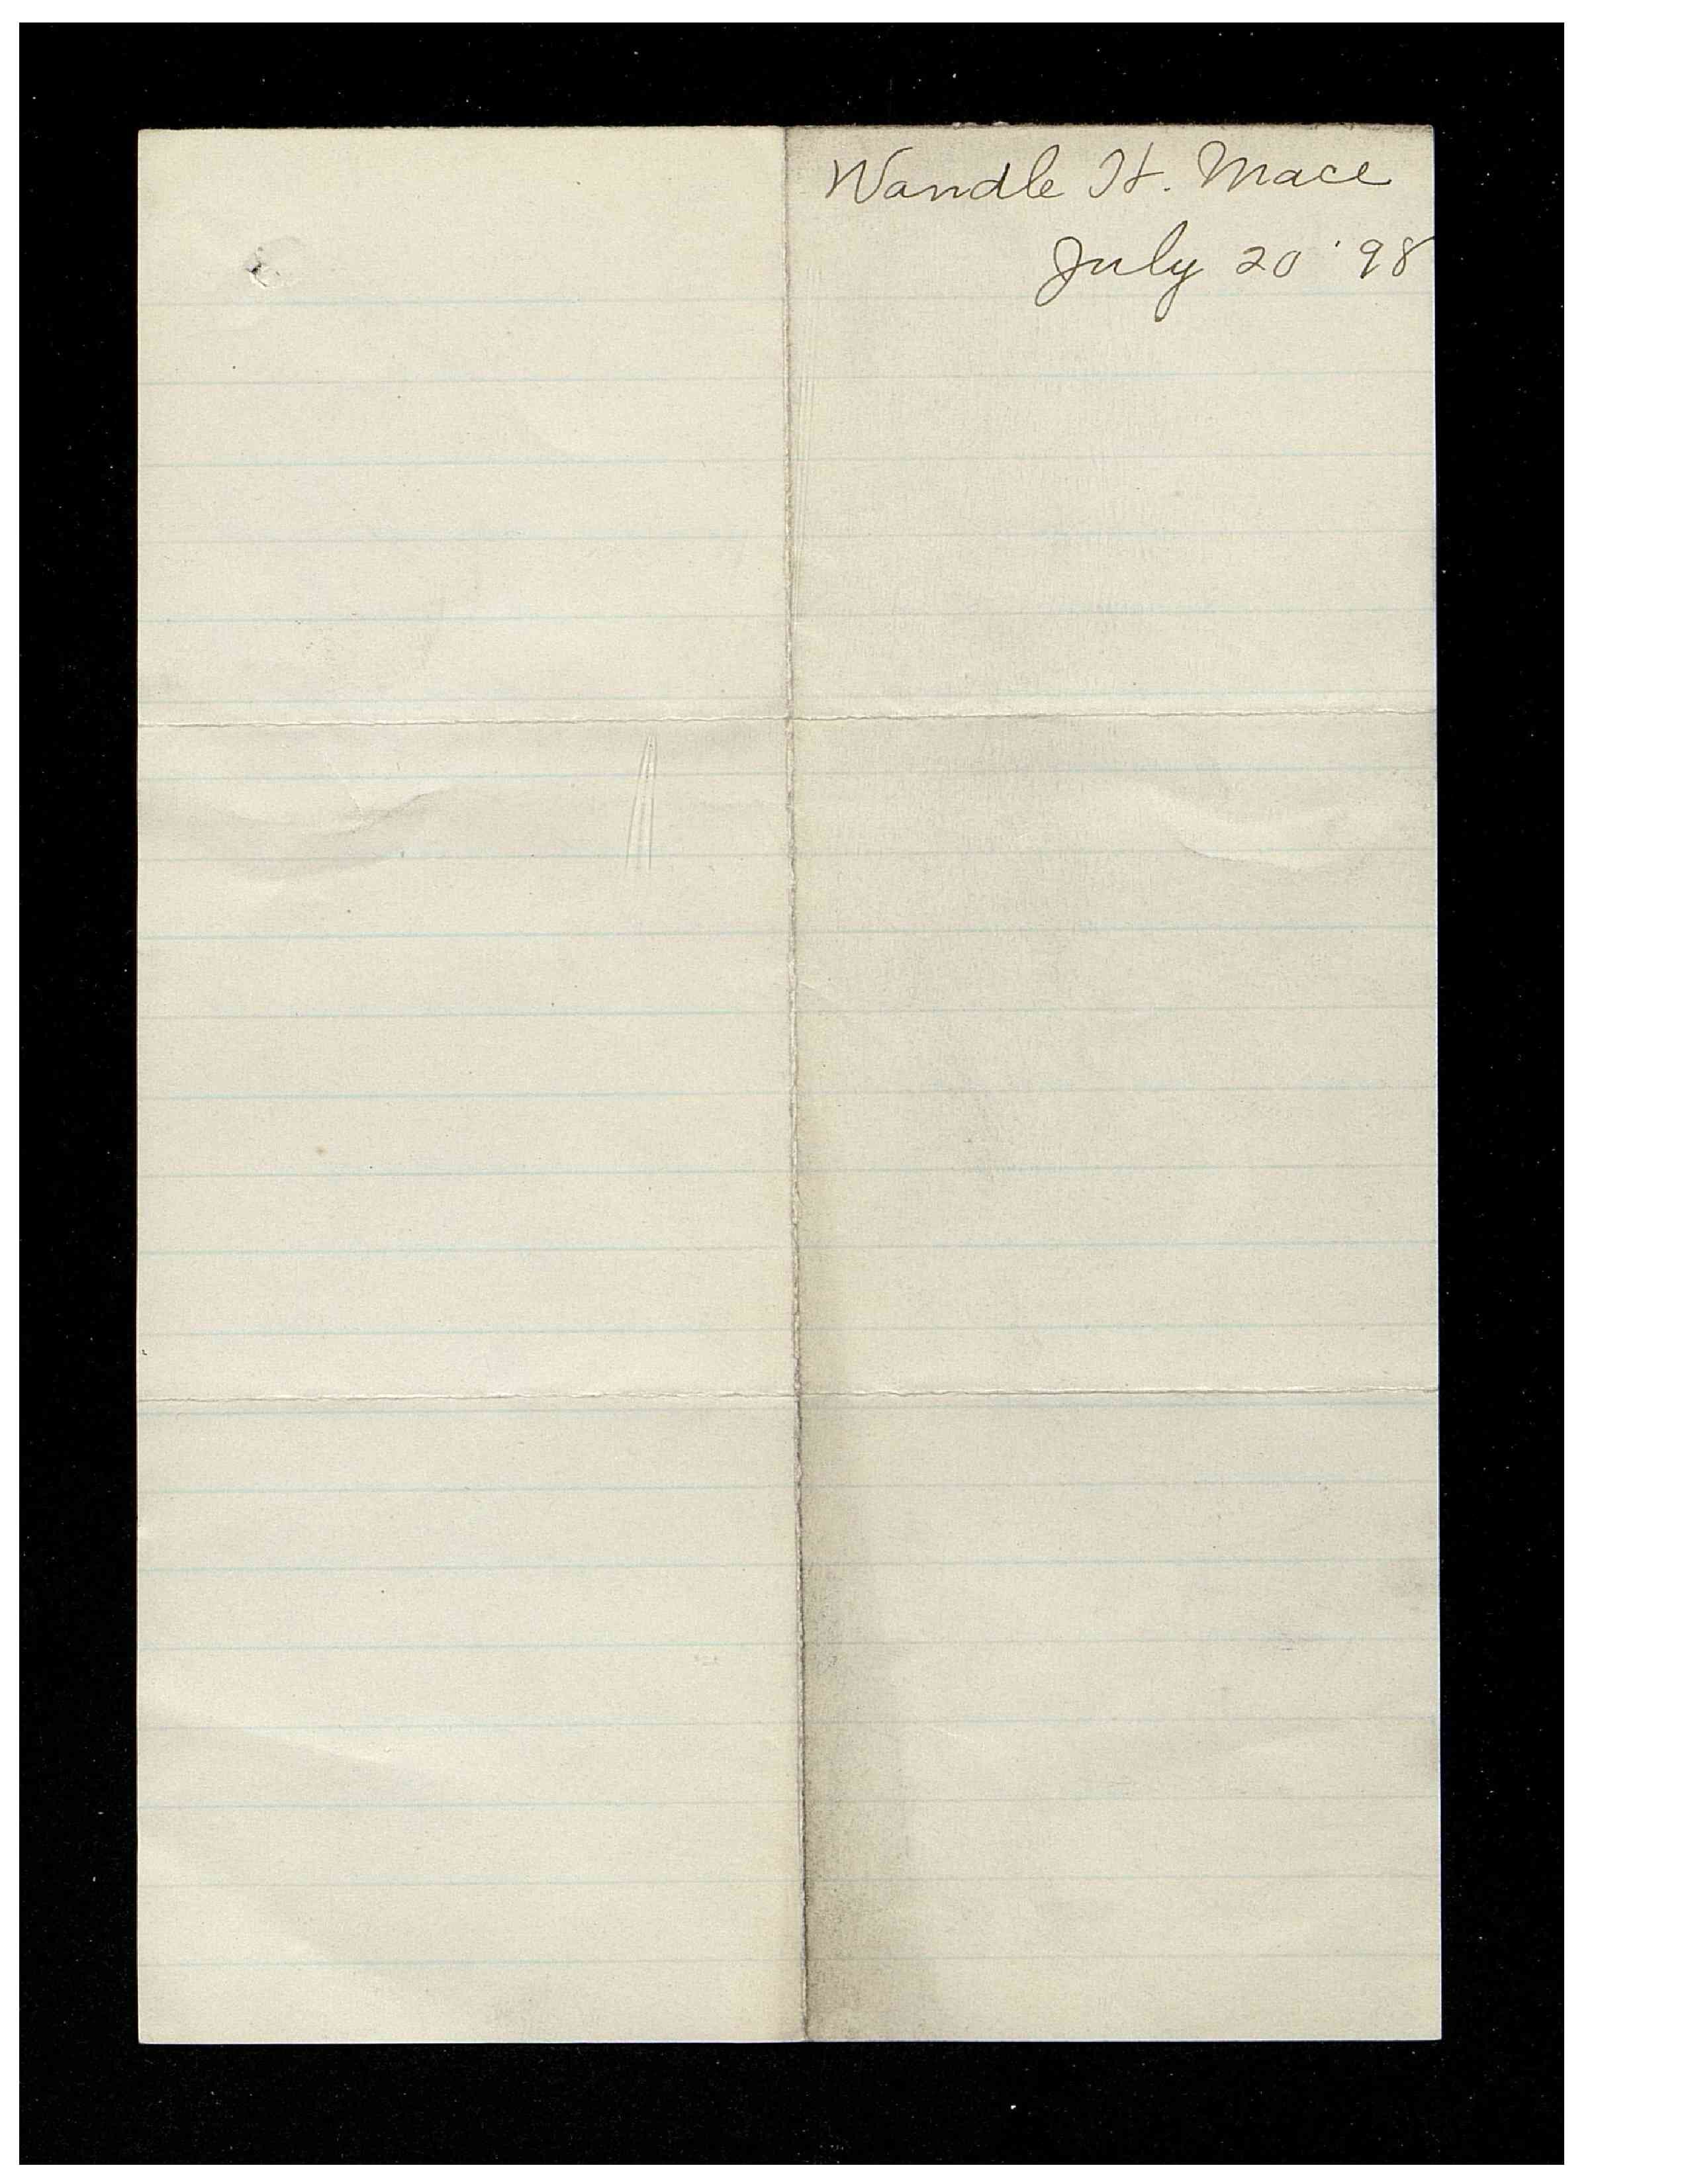 Wandle H. Mace
July 20 '98